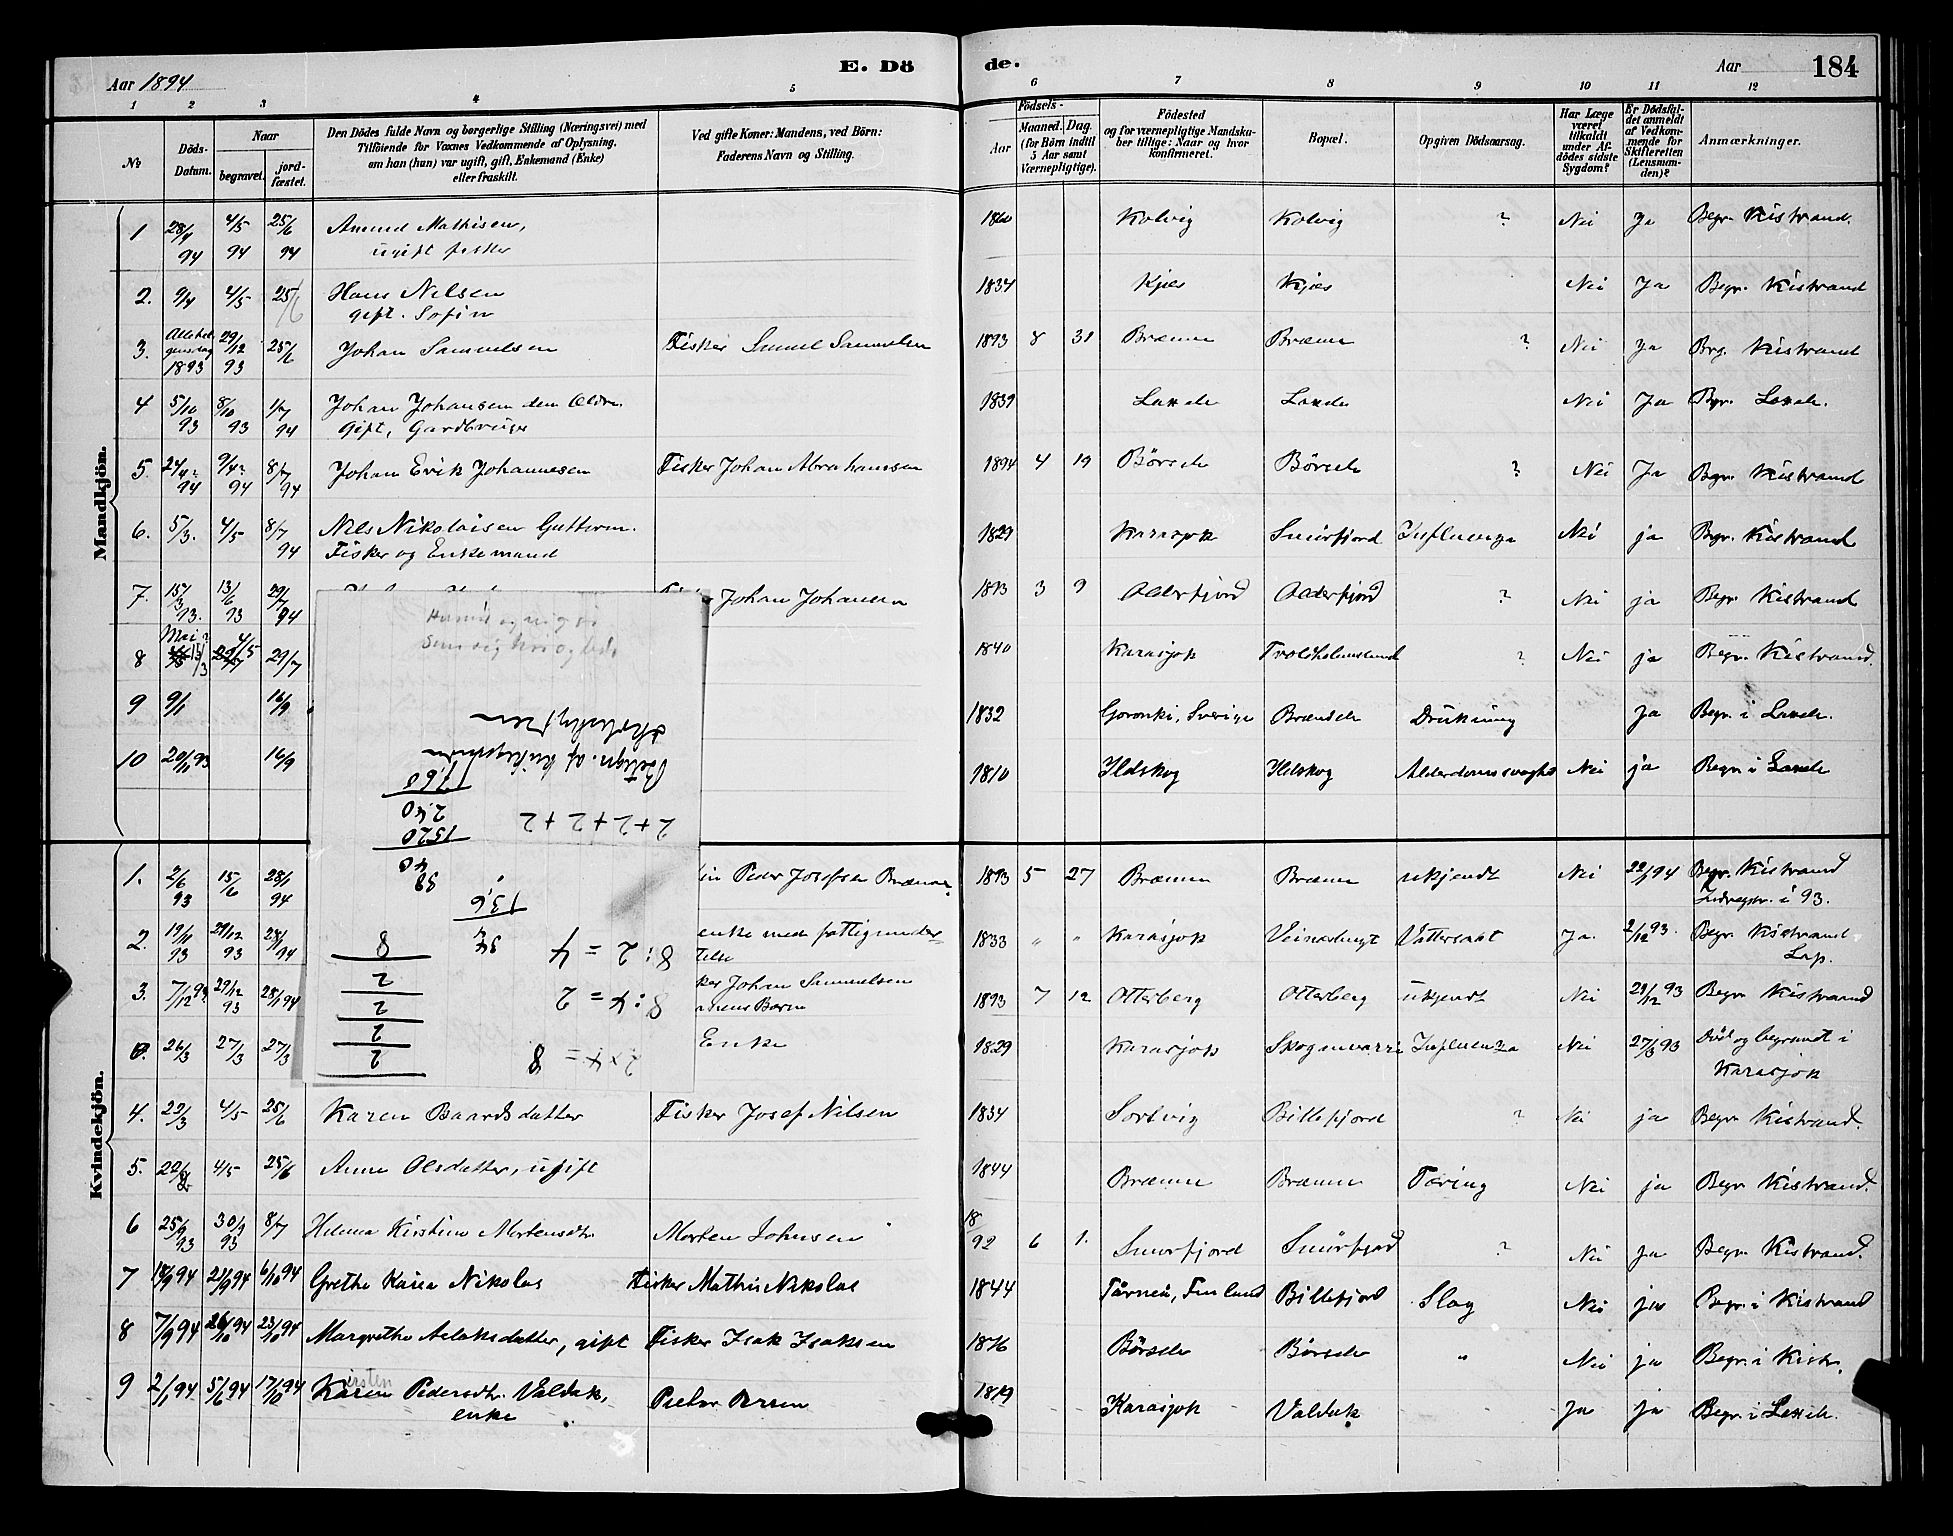 Aar 1894
E. Dö
de.
Aar
184
1 2 3 4 5 6 7 8 9 10 11 12
№
Döds-Datum.
Naar
begravet.
jord-fæstet.
Den Dödes fulde Navn og borgerlige Stilling (Næringsvei) med
Tilföiende for Voxnes Vedkommende af Oplysning,
om han (hun) var ugift, gift, Enkemand (Enke)
eller fraskilt.
Ved gifte Koner: Mandens, ved Börn:
Faderens Navn og Stilling.
Födsels-
Aar
Maaned. Dag.
(for Börn indtil
5 Aar samt
Værnepligtige).
Födested
og for værnepligtige Mandska-
ber tillige: Naar og hvor
konfirmeret.
Bopæl.
Opgiven Dödsaarsag.
Har Læge
været
tilkaldt
under Af-
dödes sidste
Sygdom?
Er Dödsfal-
det anmeldt
af Vedkom-
mende for
Skifteretten
(Lensman-
den)?
Anmærkninger.
Mandkjön.
1 28/4 94 4/5 94 25/6 94 Amund Mathisen, 1860 Kolvig Kolvig ? Nei Ja Begr. Kistrand.
ugift fisker
2. 9/4 4/5 25/6 Hans Nilsen 1834 Kjæs Kjæs Nei Ja Begr. Kistrand
gift.
3. 1893 29/12 93 25/6 Johan Samuelsen Fisker Samuel Samuelsen 1893 8 31 Brænne Brænne ? Nei Ja Brg. Kistrand
4 5/10 93 8/10 93 1/7 94 Johan Johansen den Ældre. 1839 Nei Ja
Gift,
5. 24/4? 94 9/4? 94 8/7 94 Johan Erik Johannesen Fisker Johan Abrahamsen 1894 4 19 Börsele Börsele ? Nei Ja Begr. Kistrand
6. 5/3. 4/5 8/7 94 Nils Nikolaisen Guttorm. 1829 Karasjok Smörfjord Influenza Nei ja Begr. Kistrand
Fisker og Enkemand
7. 15/3 93. 13/6 93 29/7 94 Johan Johansen 1893 3 9 Olderfjord Olderfjord ? Nei ja Begr. Kistrand
8 Mai? 4/5 29/7 1840 Karasjok Troldholmsund ? Nei ja Begr. Kistrand.
9 9/1 16/9 1832 Sverige Brændele Drukning Ja
10 20/11 93 16/9 1810 Ildskog Ildskog Alderdomssvaghed Nei ja
Begn. af
2+2+2+2
1520
240
1760
59
40
54
136
8:2 = 4
8:4 = 2
2×4 = 8
2
2
2
2
8
Kvindekjön.
1. 2/6 93 15/6 28/1 94 Peder Josefsen Brænne. 1893 5 27 Brænne Brænne ukjendt Nei 22/1 94 Begr. Kistrand
Indregstr. i 93.
2. 19/11 93 29/12 93 28/1 94 enke med fattigunder- 1833 " " Karasjok Vattersaat Ja. 2/12 93. Begr. Kistrand
Lap.
3. 7/12 93 29/12 93 28/1 94 Johan Samuelsen 1893 7 12 Otterberg Otterberg ukjendt Nei 29/12 93 Begr. Kistrand
26/3 27/3 27/3 Enke 1829 Karasjok Skoganvarre Influenza Nei 27/3 93 Död og begravet i
Karasjok
4. 22/3 4/5 25/6 Karen Baardsdatter Fisker Josef Nilsen 1834 Sortvig Billefjord ? Nei ja Begr. Kistrand.
5. 4/5 25/6 Anne Olsdatter, ugift 1844 Brænne Brænne Tæring Nei ja Begr. Kistrand.
6 25/9 93 30/9 93 8/7 Helena Kirstine Mortensdtr. Morten Johnsen 18/92 6 1. Smörfjord Smörfjord ? Nei Ja Begr. Kistrand.
7 18/9 94 21/9 94 6/10 94 Grethe Karia Nikolas Fisker Mathis Nikolas 1844 Tårneå, Finland Billefjord Slag Nei ja Begr. i Kistrand
8 7/9 94 26/10 94 23/10 94 Margrethe Aslaksdatter, gift Fisker Isak Isaksen 1876 Börsele Börsele " Nei ja Begr. i Kistr.
9 2/1 94 5/6 94 17/12 94 Karen Pedersdtr. Valdak, 1819 Karasjok Valdak Ja ja
enke